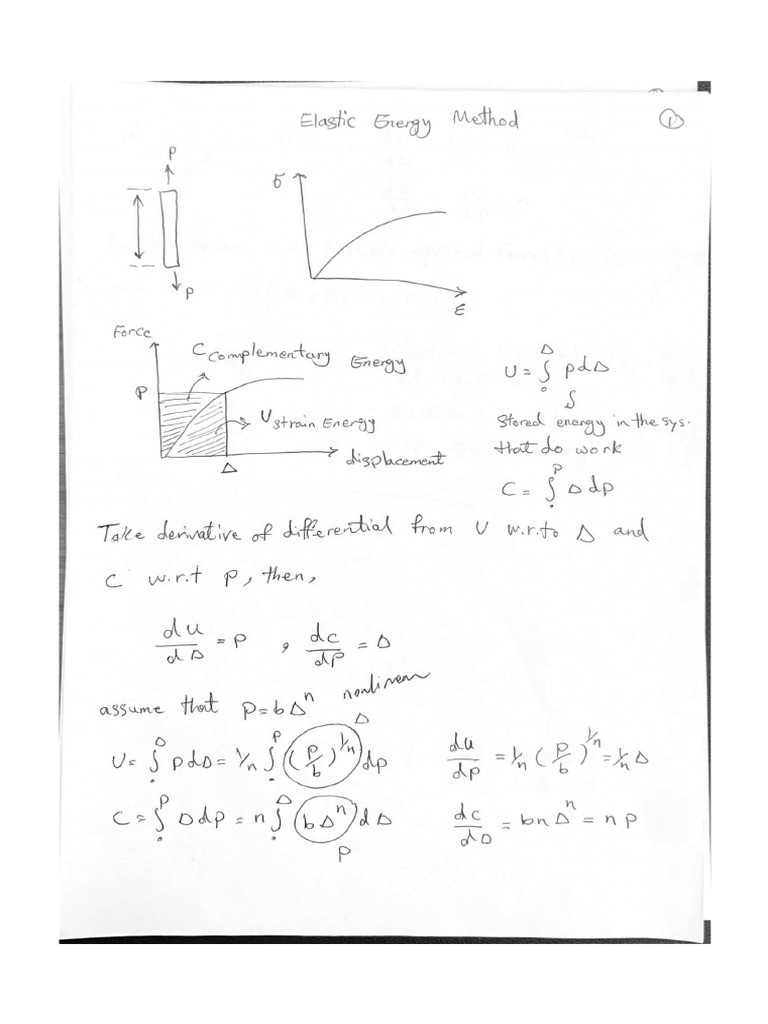 Elastic Energy Method
①
P
P
σ
ε
Force
P
C Complementary Energy
U strain Energy
displacement
Δ
U = ∫₀^Δ p dΔ
Stored energy in the sys.
that do work
C = ∫₀^P Δ dp
Take derivative of differential from U w.r.to Δ and
C w.r.t P, then,
du/dΔ = P , dc/dP = Δ
assume that P = bΔⁿ nonlinear
Δ
U = ∫₀^Δ P dΔ = 1/n ∫₀^P (P/b)^(1/n) dp
du/dp = 1/n (P/b)^(1/n) = 1/n Δ
C = ∫₀^P Δ dp = n ∫₀^Δ (bΔⁿ) dΔ
P
dc/dΔ = bnΔⁿ = nP